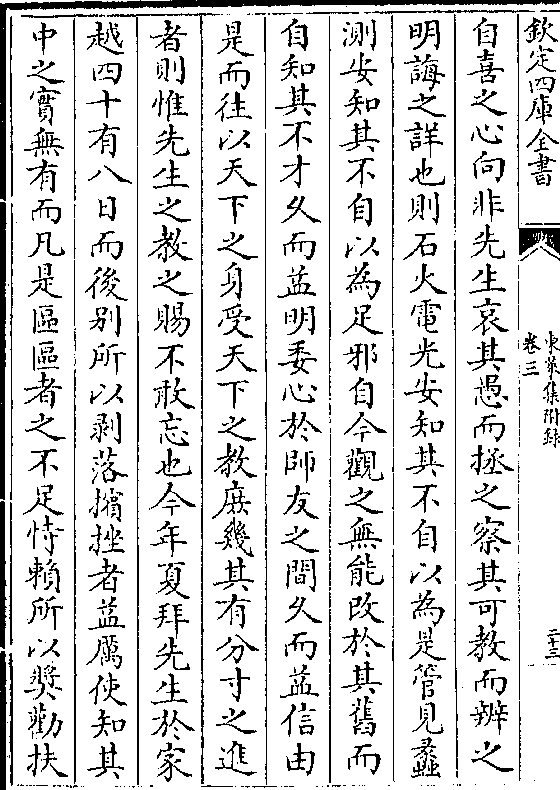 欽定四庫全書
東萊集附錄
卷三
二十三
自喜之心向非先生哀其愚而拯之察其可教而辨之
明誨之詳也則石火電光安知其不自以為是管見蠡
測安知其不自以為足邪自今觀之無能改於其舊而
自知其不才久而益明委心於師友之間久而益信由
是而往以天下之身受天下之教庶幾其有分寸之進
者則惟先生之教之賜不敢忘也今年夏拜先生於家
越四十有八日而後别所以剥落擯挫者益厲使知其
中之實無有而凡是區區者之不足恃賴所以奬勸扶